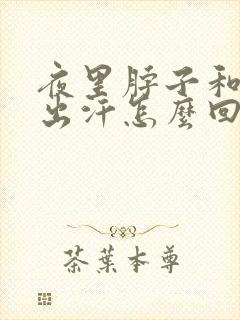 夜里脖子和
出汗怎麽回
茶葉本尊